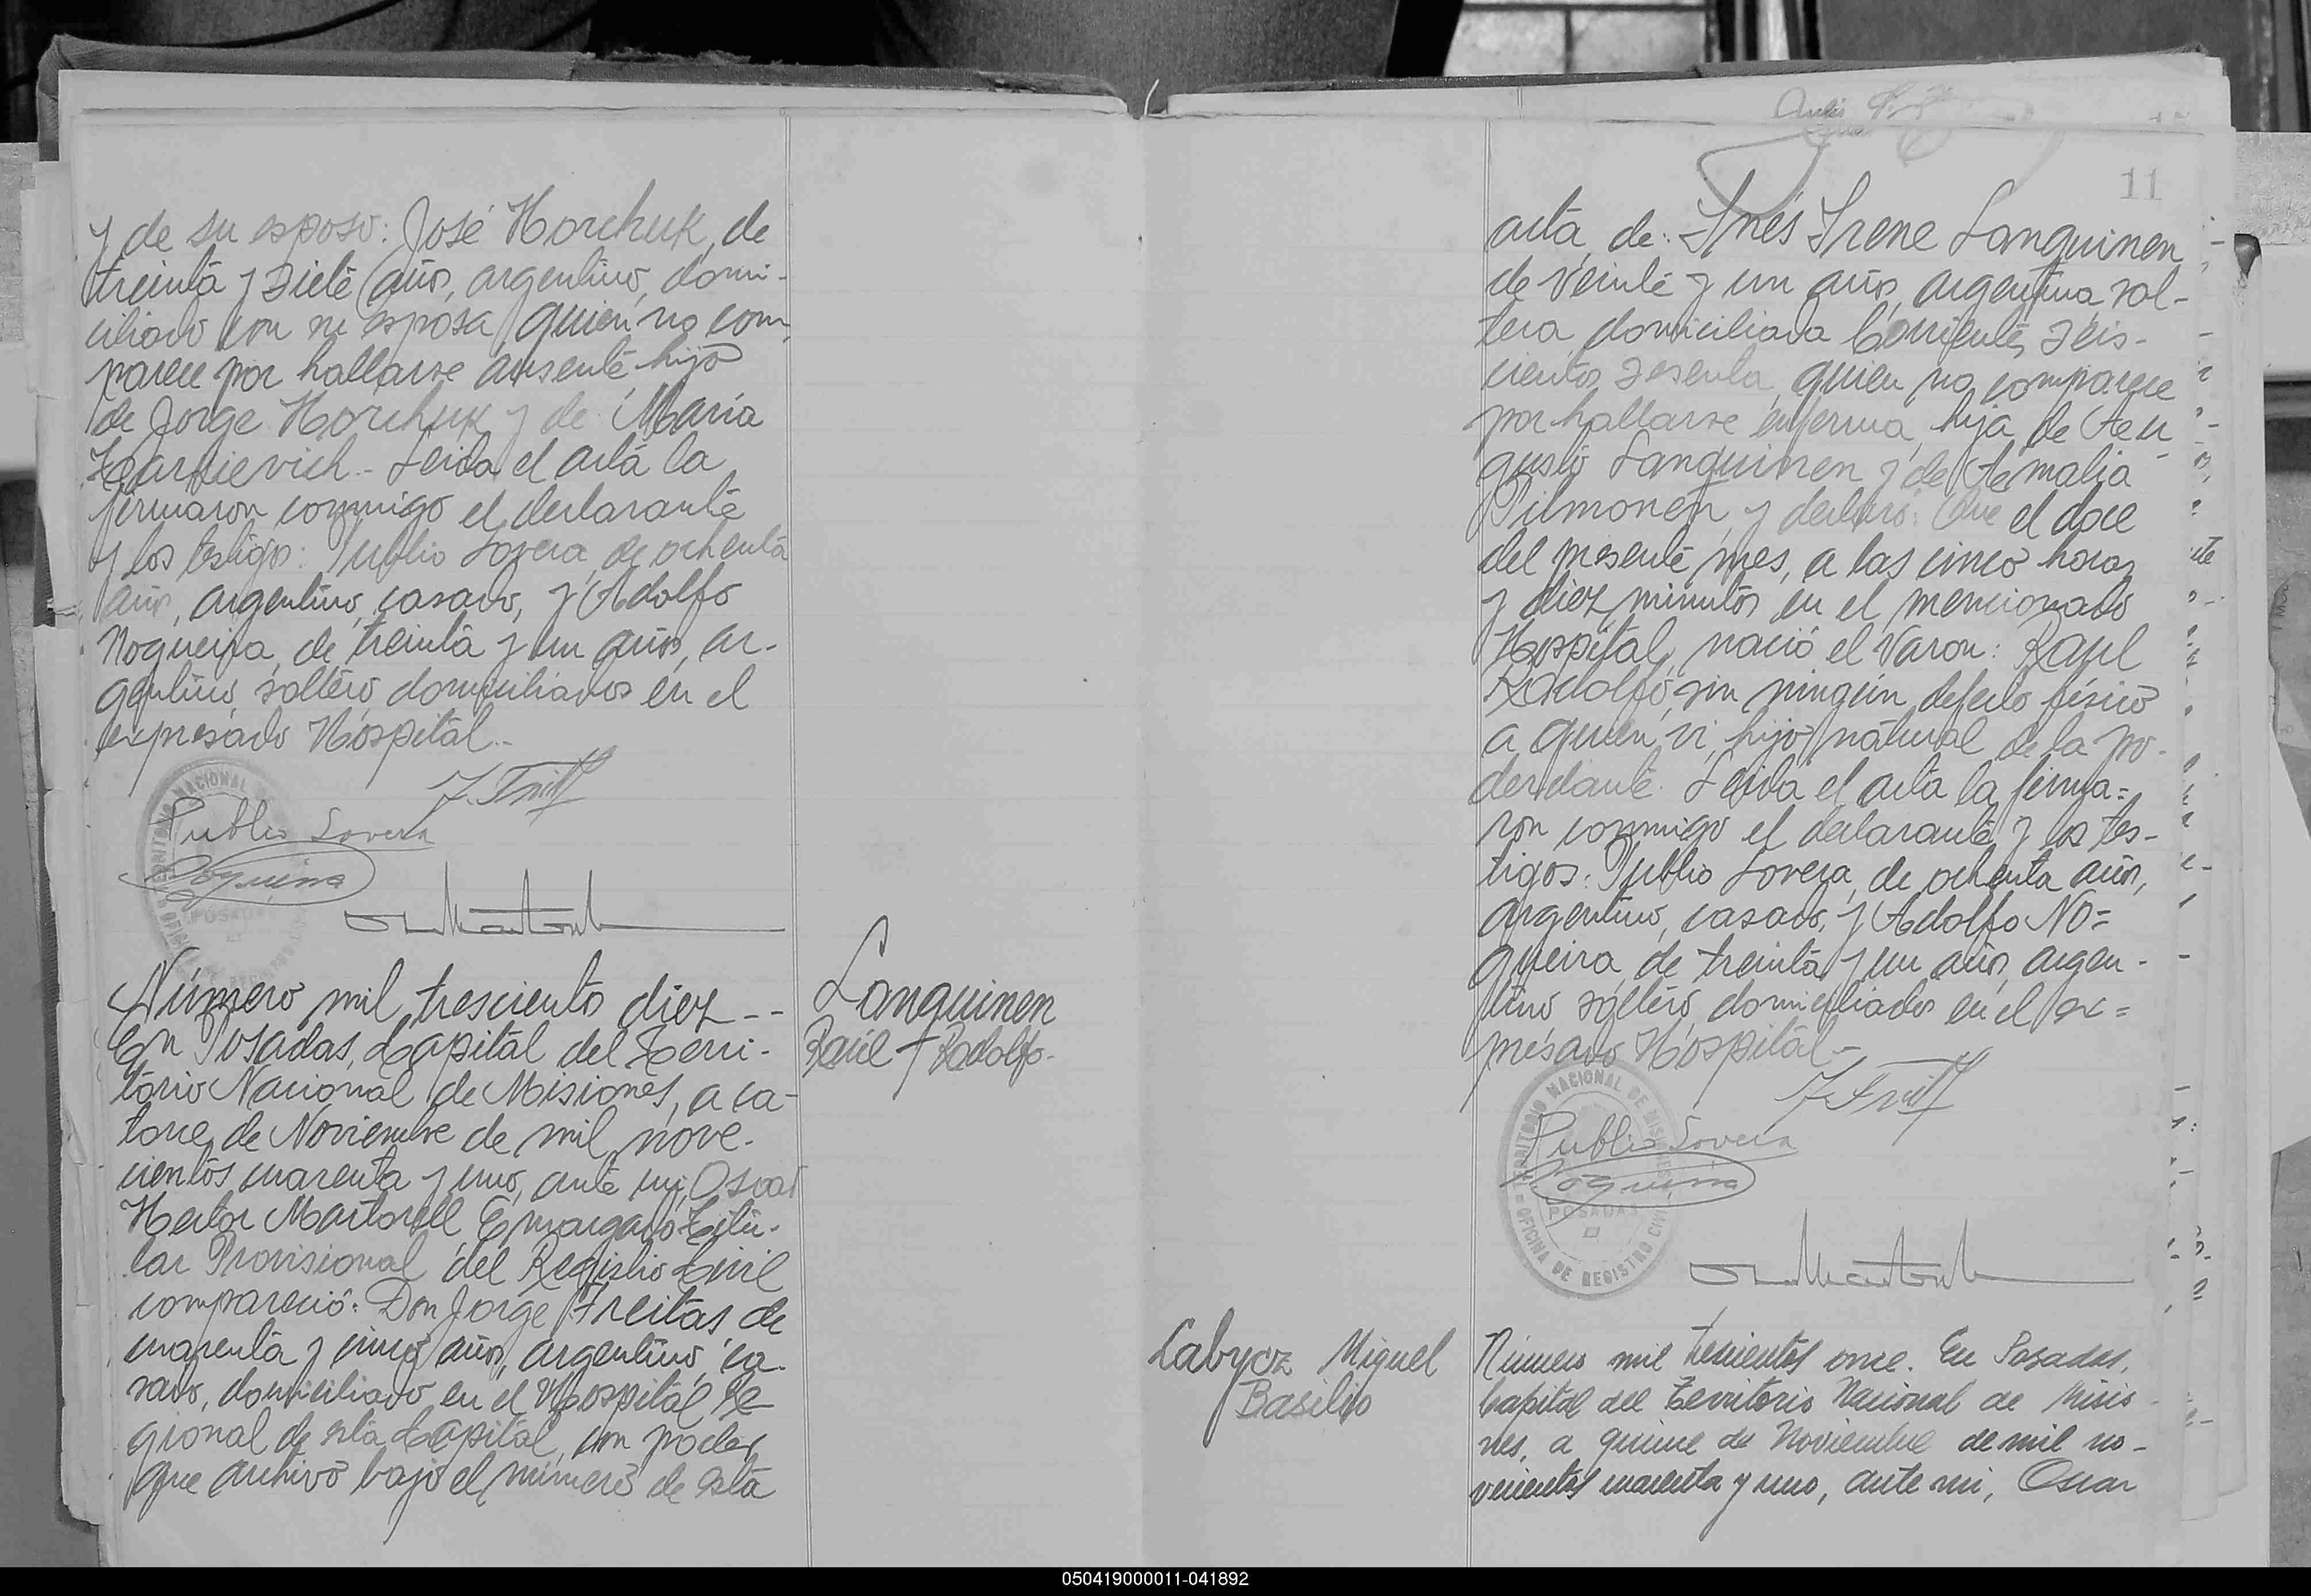 y de su esposo: José Horchuk, de
treinta y siete años, argentino, domi-
ciliado con su esposa, quien no com-
parece por hallarse ausente, hijo
de Jorge Horchuk y de María
Zarsievich.- Leída el acta la
firmaron conmigo el declarante
y los testigos: Publio Lovera, de ochenta
años, argentino, casado, y Adolfo
Nogueira, de treinta y un años, ar-
gentino, soltero, domiciliados en el
expresado Hospital.-
Publio Lovera
Número mil trescientos diez --
En Posadas, Capital del Terri-
torio Nacional de Misiones, a ca-
torce de Noviembre de mil nove-
cientos cuarenta y uno, ante mi, Oscar
Hector Martorell, Encargado Titu-
lar Provisional del Registro Civil
compareció: Don Jorge Freitas de
cuarenta y cinco años, argentino, ca-
sado, domiciliado en el Hospital Re-
gional de esta Capital, con poder
que archivo bajo el número de esta
Languinen
Raúl Rodolfo.-
11
acta, de: Inés Irene Languinen
de veinte y un años, argentina, sol-
tera domiciliada Corrientes seis-
cientos sesenta, quien no comparece
por hallarse enferma, hija de Au-
gusto Languinen y de Amalia
Pilmonen, y declaró: Que el doce
del presente mes, a las cinco horas
y diez minutos en el mencionado
Hospital, nació el varon: Raul
Rodolfo, sin ningún defecto físico
a quien vi, hijo natural de la po-
derdante. Leída el acta la firma=
ron conmigo el declarante y los tes-
tigos: Publio Lovera, de ochenta años,
argentino, casado, y Adolfo No=
gueira, de treinta y un años, argen-
tino soltero, domiciliados en el ex=
presado Hospital.-
TERRITORIO NACIONAL DE MISIONES
Publio Lovera
POSADAS
OFICINA DE REGISTRO CIVIL
Labycz Miguel
Basilio
Número mil trescientos once. En Posadas,
Capital del Territorio Nacional de Misio-
nes, a quince de Noviembre de mil no-
vecientos cuarenta y uno, ante mi, Oscar
050419000011-041892